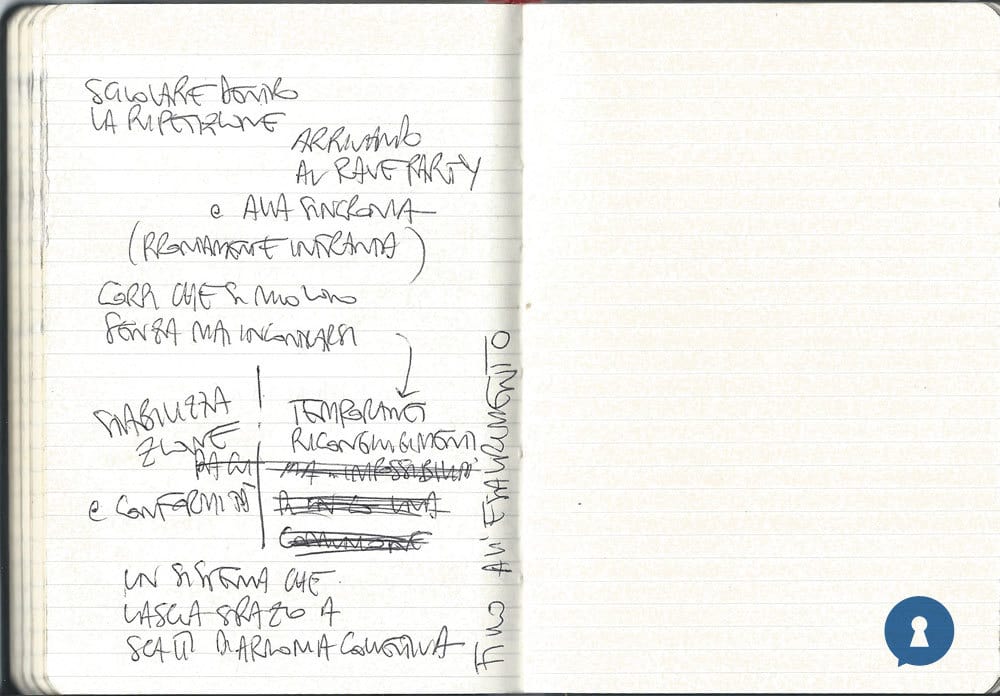 SCIVOLARE DENTRO
LA RIPETIZIONE
ARRIVANDO
AL RAVE PARTY
e ALLA SINCRONIA
( INFRANTA)
CORPI CHE SI MUOVONO
SENZA MAI INCONTRARSI
STABILIZZA
ZIONE
e CONFORMITÀ
TEMPORANEI
RICONGIUNGIMENTI
MA IMPOSSIBILITÀ
COMUNIONE
UN SISTEMA CHE
LASCIA SPAZIO A
SCATTI DI ARMONIA COLLETTIVA
FINO ALL'ESAURIMENTO